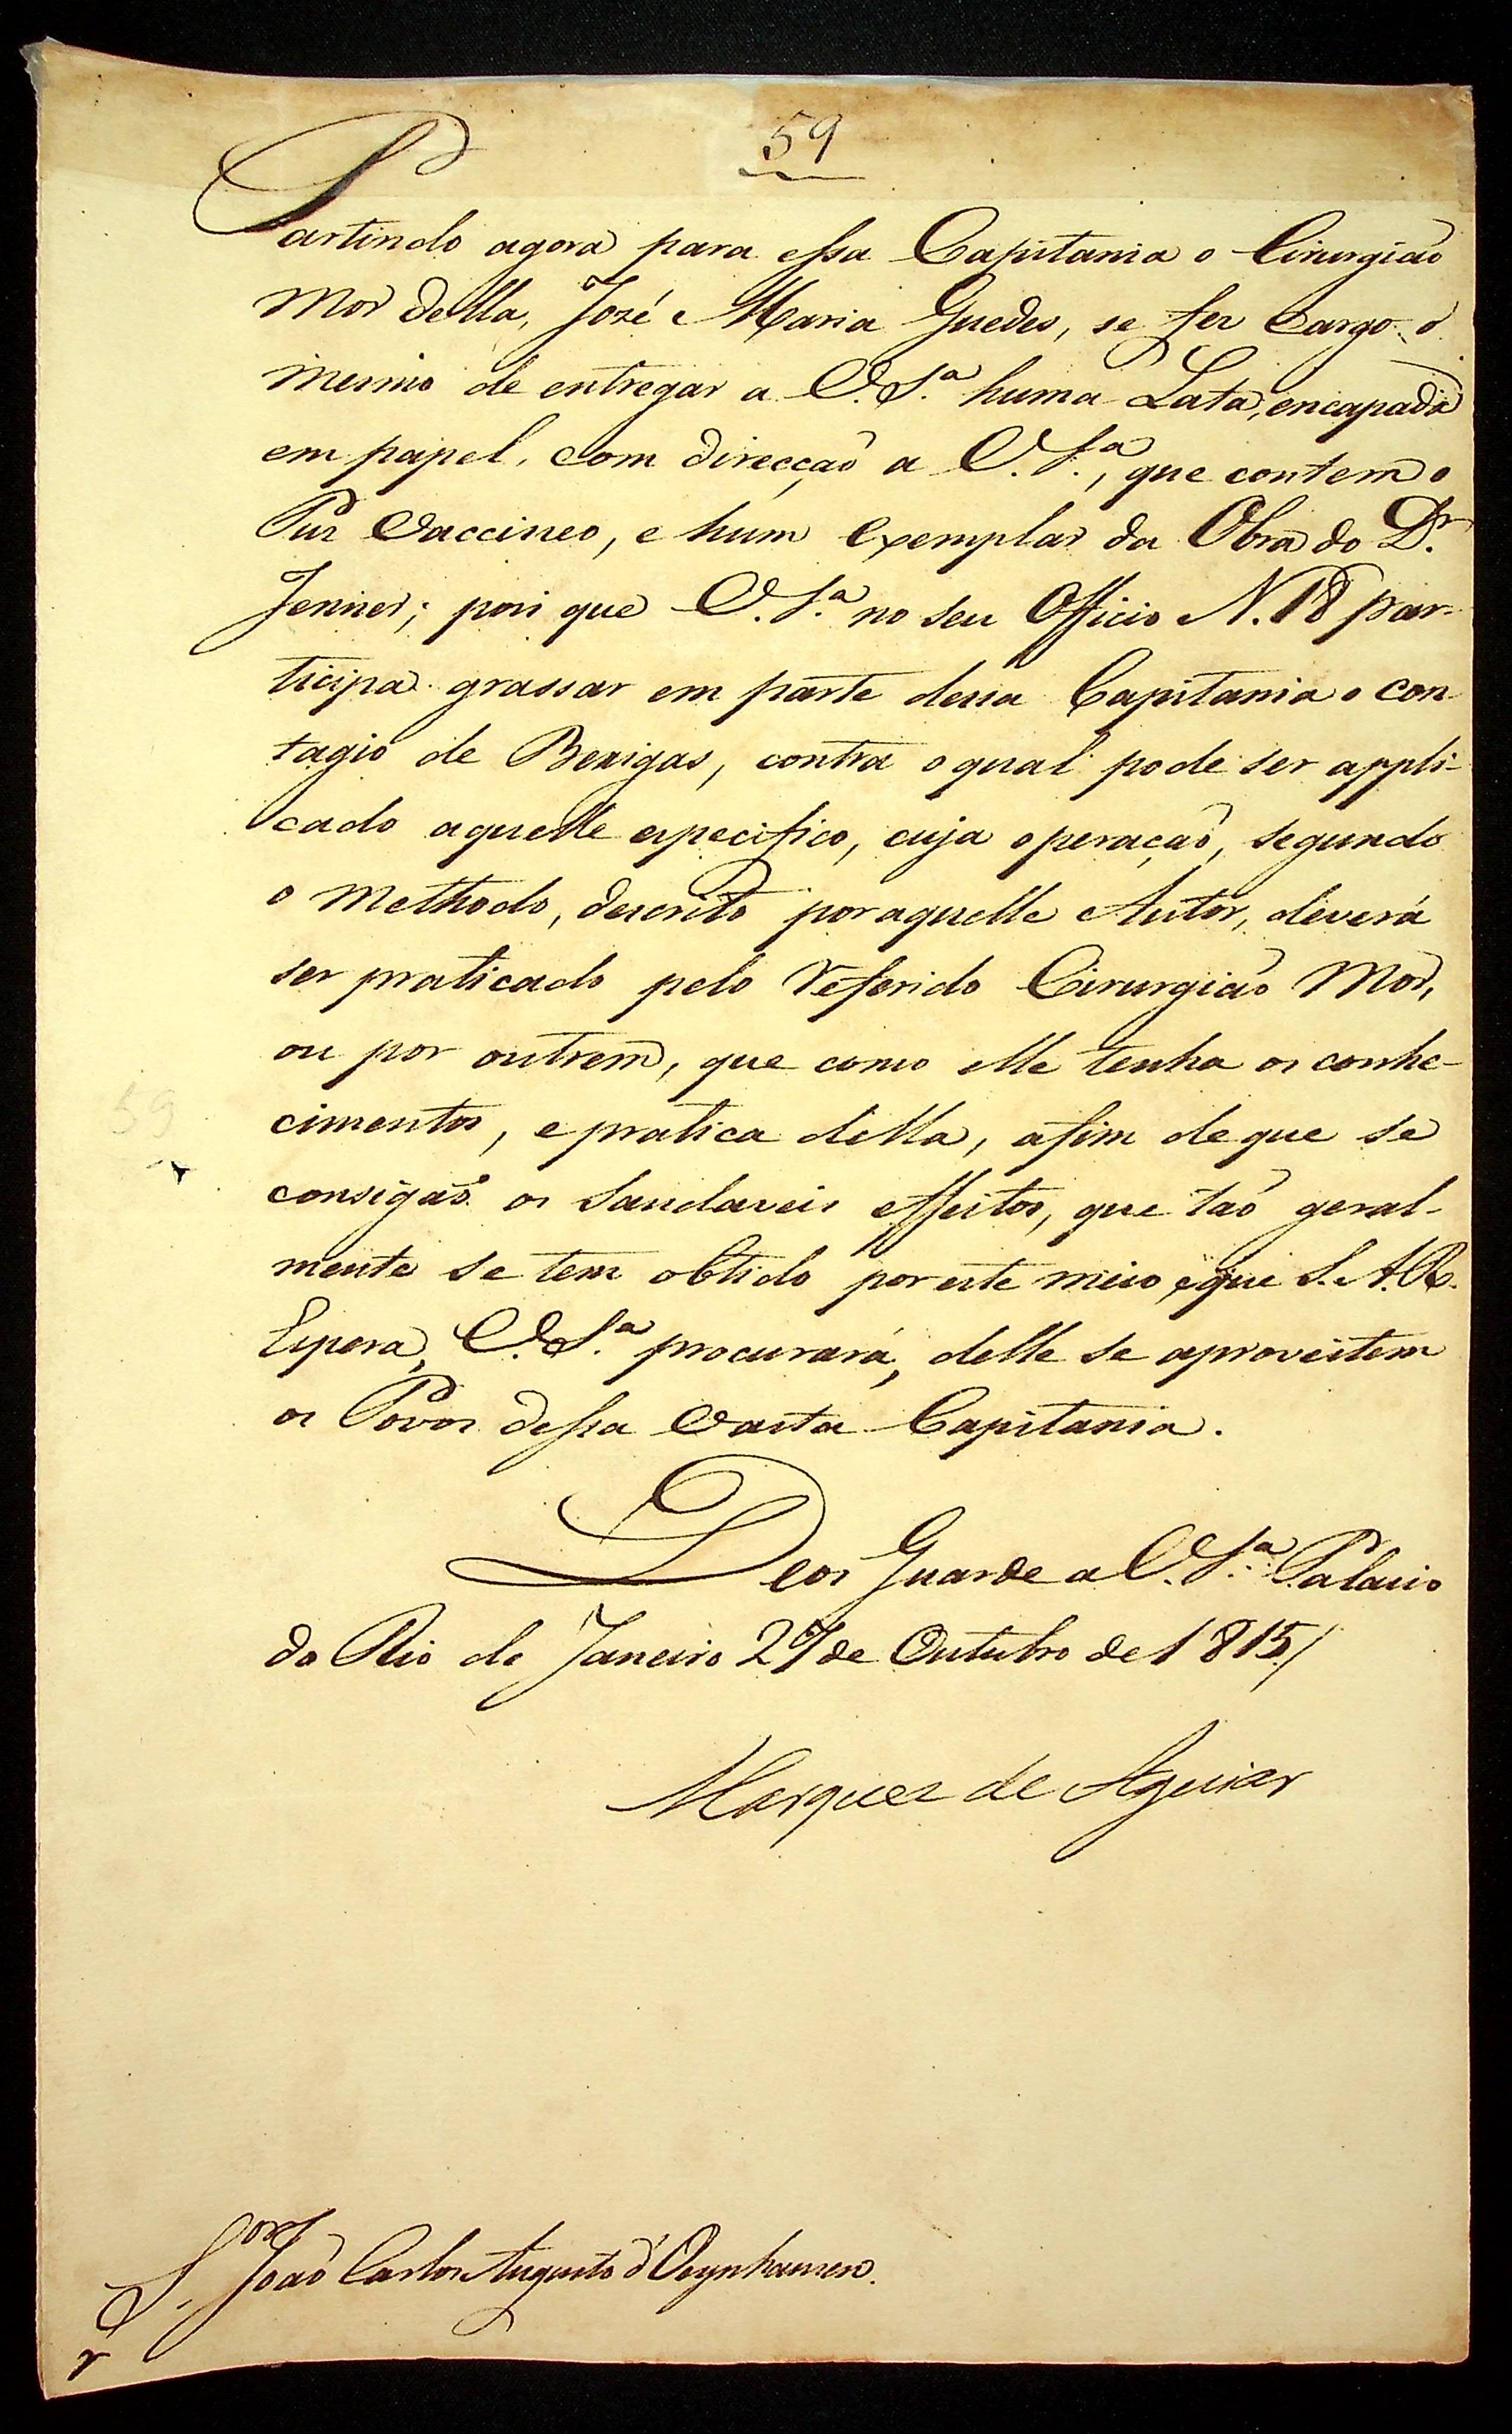 59
Partindo agora para essa Capitania o Cirurgiaõ
Mor della, José Maria Guedes, se fez cargo o
mesmo de entregar a V. S.ª huma Lata, encapada
em papel, com direcçaõ a V. S.ª, que contem o
Puz Vaccineo, e hum Exemplar da Obra do D.r
Jenner; pois que V. S.ª no seu Officio N. 18 par-
ticipa grassar em parte dessa Capitania o con
tagio de Bexigas, contra o qual pode ser appli-
cado aquelle especifico, cuja operaçaõ, segundo
o Methodo, descrito por aquelle Autor, deverá
ser praticado pelo referido Cirurgiaõ Mor,
ou por outrem, que como elle tenha os conhe-
cimentos, e pratica della, afim de que se
consigaõ os Saudaveis effeitos, que taõ geral-
mente se tem obtido por este meio, e que S. A. R.
Espera, V. S.ª procurará, delle se aproveitem
os Povos dessa vasta Capitania.
Deos Guarde a V. S.ª Palacio
do Rio de Janeiro 27 de Outubro de 1815 /
Marquez de Aguiar
S.or Joaõ Carlos Augusto d'Oeynhausen.
59